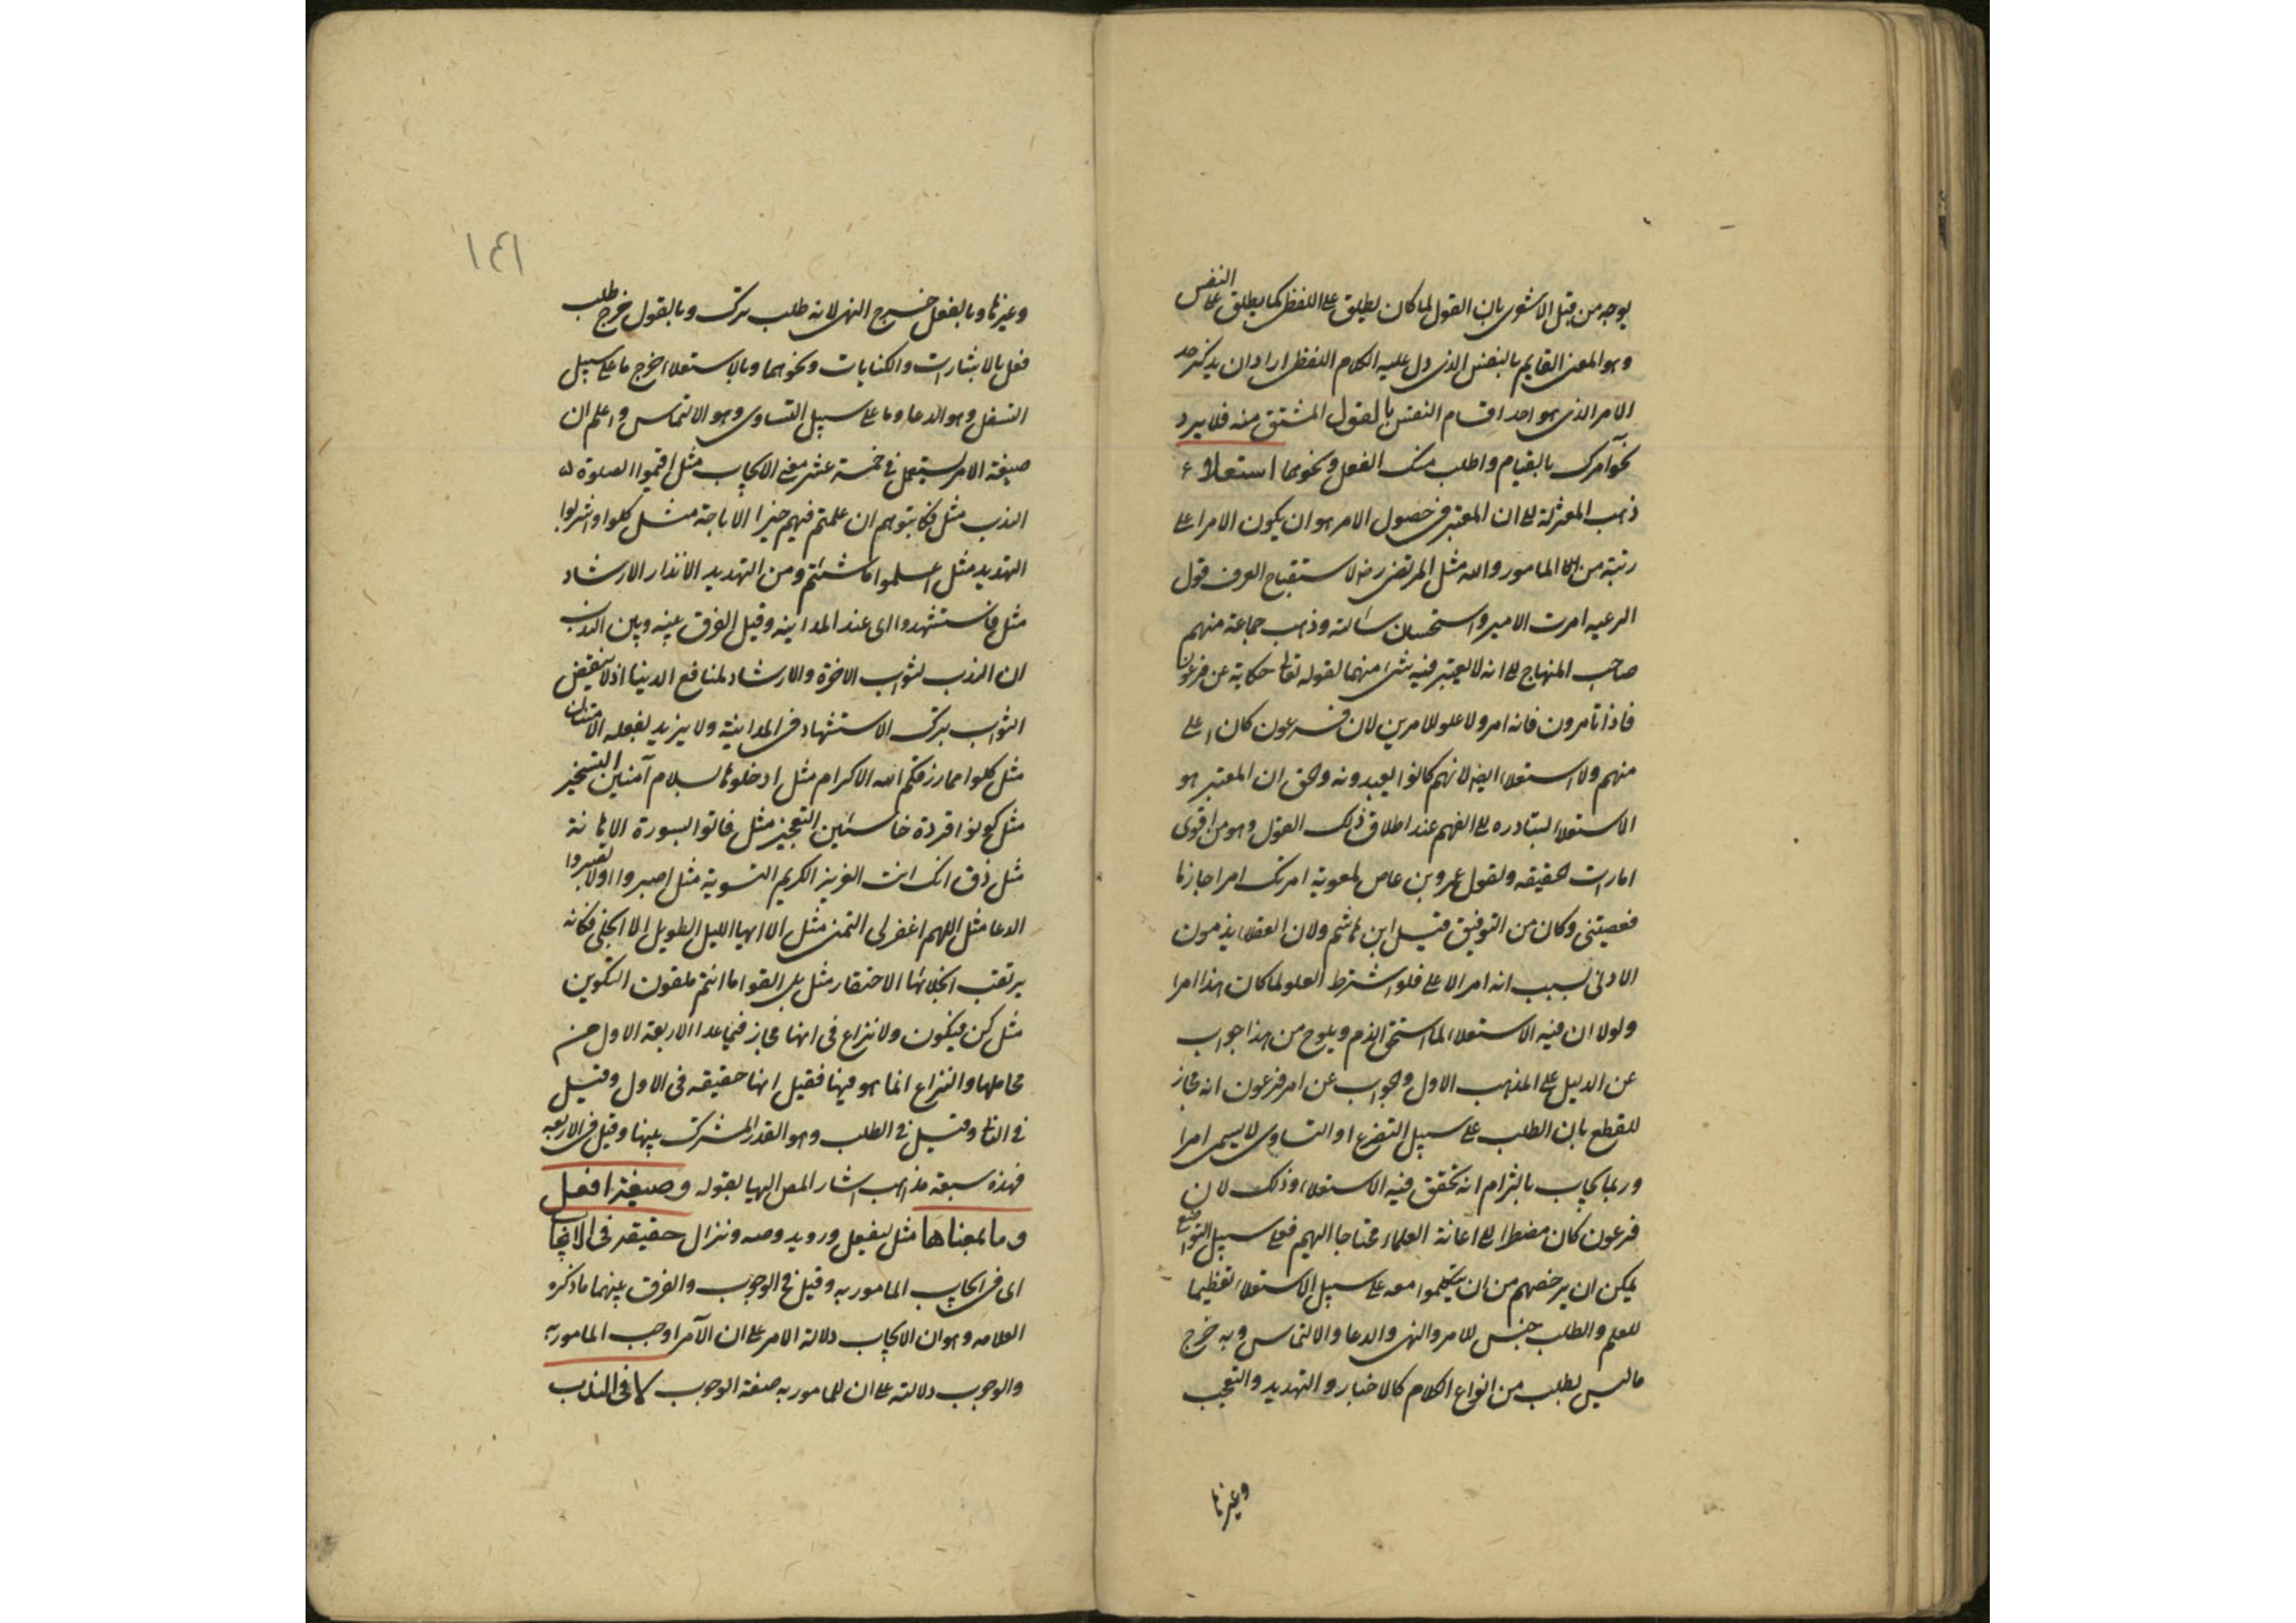 يوجه من قبل الاشعرى بان القول لما كان يطلق على اللفظ كما يطلق على النفس
وهو المعنى القايم بالنفس الذى دل عليه الكلام اللفظى اراد ان يذكر حد
الامر الذى هو احد اقسام النفس بالقول المشتق منه فلا يرد
نحو آمرك بالقيام واطلب منك الفعل ونحوهما استعلاء
ذهب المعتزلة الى ان المعتبر فى حصول الامر هو ان يكون الامر اعلى
رتبة من المامور والله مثل المرتضى رضه لاستقباح العرف قول
الرعيه امرت الامير واستحسان سالته وذهب جماعة منهم
صاحب المنهاج الى انه لا يعتبر فيه شئ منهما لقوله تعالى حكاية عن فرعون
فماذا تامرون فانه امر ولا علو للامرين لان فرعون كان اعلى
منهم ولا استعلاء ايضا لانهم كانوا يعبدونه والحق ان المعتبر هو
الاستعلاء لتبادره الى الفهم عند اطلاق ذلك القول وهو من اقوى
امارات الحقيقه ولقول عمرو بن عاص لمعوية امرتك امرا جازما
فعصيتنى وكان من التوفيق قتل ابن هاشم ولان العقلاء يذمون
الادنى بسبب انه امر الاعلى فلو اشترط العلو لما كان هذا امرا
ولولا ان فيه الاستعلاء لما استحق الذم ويلوح من هذا جواب
عن الدليل على المذهب الاول والجواب عن امر فرعون انه مجاز
للقطع بان الطلب على سبيل التضرع او التساوى لا يسمى امرا
وربما يجاب بالتزام انه تحقق فيه الاستعلاء وذلك لان
فرعون كان مضطرا الى اعانة العلماء محتاجا اليهم فعلى سبيل التواضع
يمكن ان يرخصهم من ان يتكلموا معه على سبيل الاستعلاء تعظيما
للعلم والطلب جنس للامر والنهى والدعا والالتماس وبه خرج
ما ليس بطلب من انواع الكلام كالاخبار والتهديد والتعجب
وغيرها
١٤١
وغيرها وبالفعل خرج النهى لانه طلب ترك وبالقول خرج طلب
فعل بالاشارات والكنايات ونحوهما وبالاستعلاء خرج ما على سبيل
التسفل وهو الدعا وما على سبيل التساوى وهو الالتماس واعلم ان
صيغة الامر يستعمل فى خمسة عشر معنى الايجاب مثل اقيموا الصلوة
الندب مثل فكاتبوهم ان علمتم فيهم خيرا الاباحة مثل كلوا واشربوا
التهديد مثل اعملوا ما شئتم ومن التهديد الانذار الارشاد
مثل فاستشهدوا اى عند المداينه وقيل الفرق بينه وبين الندب
ان الندب لثواب الاخرة والارشاد لمنافع الدنيا اذ لا ينقص
الثواب بترك الاستشهاد فى المداينة ولا يزيد بفعله الامتنان
مثل كلوا مما رزقكم الله الاكرام مثل ادخلوها بسلام آمنين التسخير
مثل كونوا قردة خاسئين التعجيز مثل فاتوا بسورة الاهانة
مثل ذق انك انت العزيز الكريم التسوية مثل اصبروا اولا تصبروا
الدعا مثل اللهم اغفر لى التمنى مثل الا ايها الليل الطويل الا انجلى فكانه
يرتقب انجلائها الاحتقار مثل بل القوا ما انتم ملقون التكوين
مثل كن فيكون ولا نزاع فى انها مجاز فيما عدا الاربعة الاول من
محاملها والنزاع انما هو فيها فقيل انها حقيقه فى الاول وقيل
فى الثانى وقيل فى الطلب وهو القدر المشترك بينها وقيل فى الاربعه
فهذه سبعة مذاهب اشار المص اليها بقوله وصيغة افعل
وما بمعناها مثل ليفعل ورويد وصه ونزال حقيقه فى الايجاب
اى فى ايجاب المامور به وقيل فى الوجوب والفرق بينهما ما ذكره
العلامه وهو ان الايجاب دلالة الامر على ان الآمر اوجب المامور به
والوجوب دلالته على ان للمامور به صفة الوجوب لا فى الندب